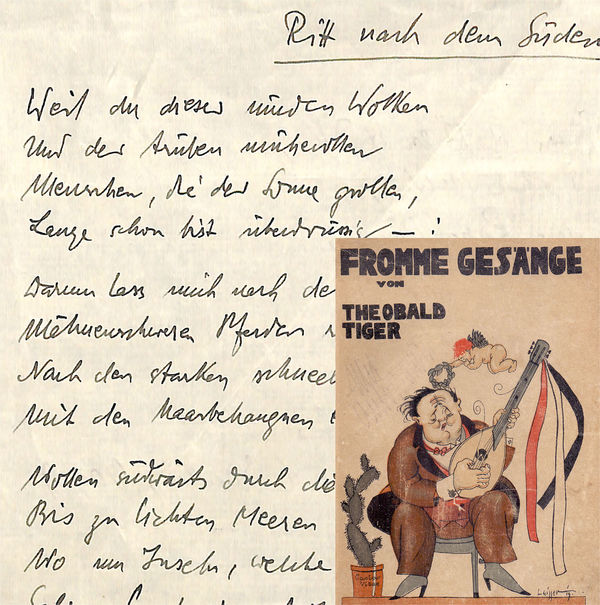 Ritt nach dem Süden
Weil du dieser müden Wolken
Und der trüben mühevollen
Menschen, die der Sonne grollen,
Lange schon bist überdrüssig – :
Darum lass mich nach de
Mähnenschweren Pferden
Nach den starken schnee
Mit den Haarbehangnen
Wollen südwärts durch die
Bis zu lichten Meeren
Wo um Inseln, welche
FROMME GESÄNGE
VON
THEOBALD
TIGER